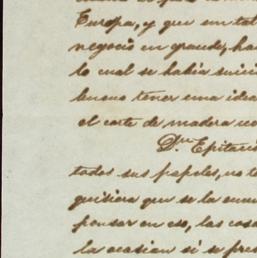 Europa, y que em tal
negocio en grande, ha
lo cual se habia inici
bueno tener una idea
el corte de madera
Dn Epitacio
todos sus papeles, no le
quisiera que se la
pensar en eso, las cosa
la ocasion si se pre